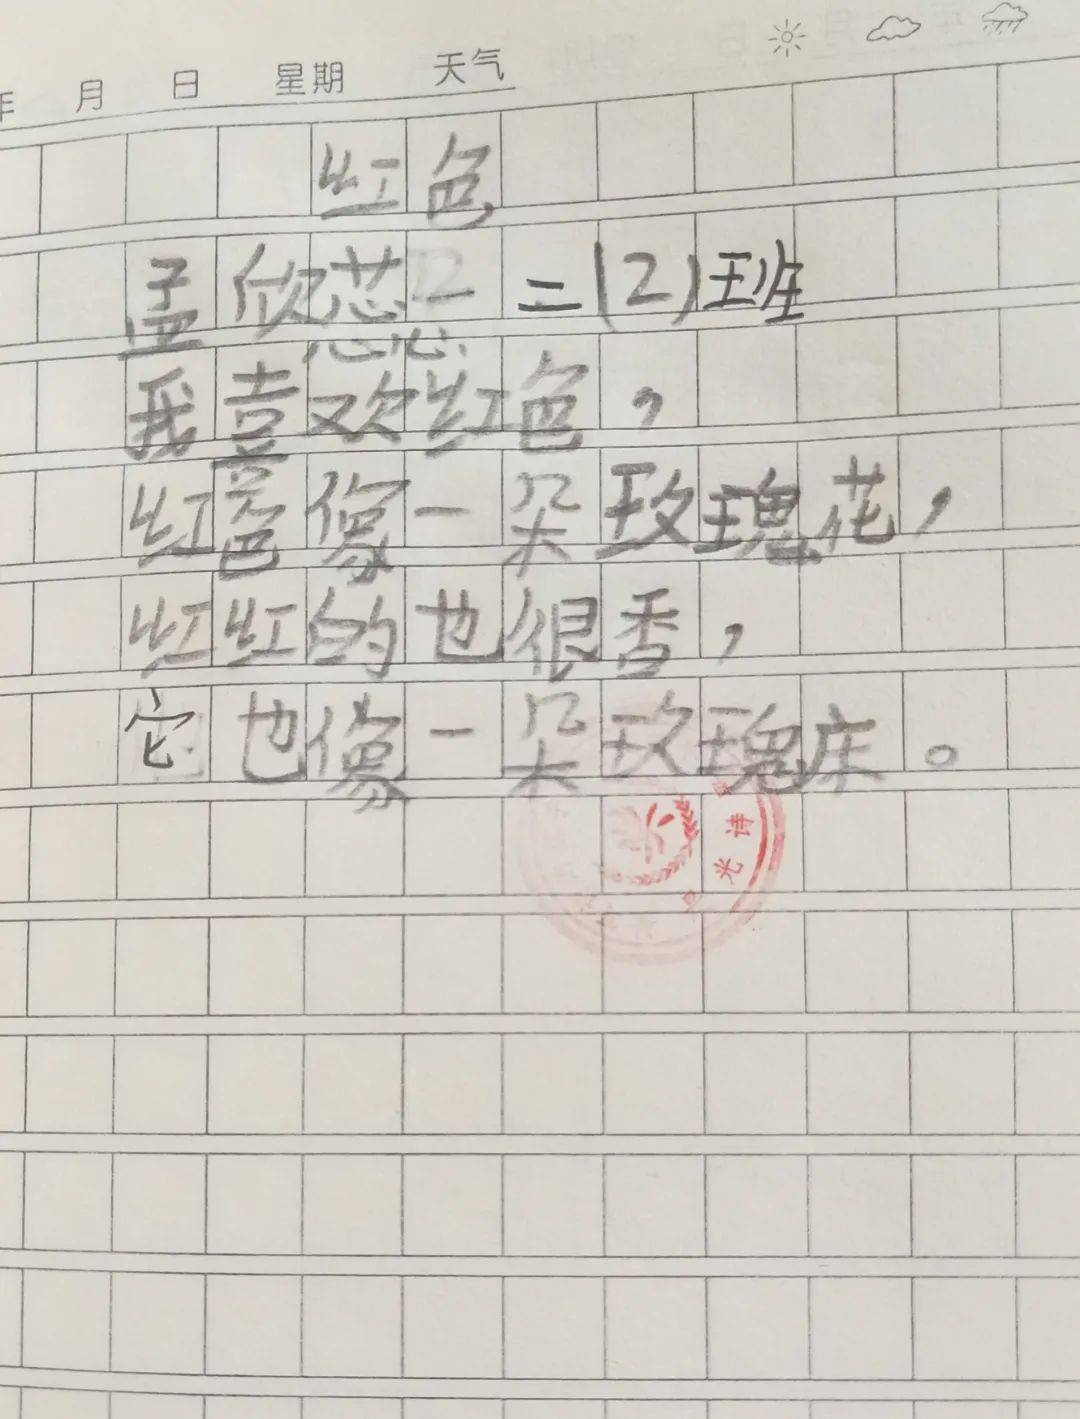 年 月 日 星期 天气
红色
孟欣芯 二(2)班
我喜欢红色，
红色像一朵玫瑰花，
红红的也很香，
它也像一朵玫瑰床。
诗
光